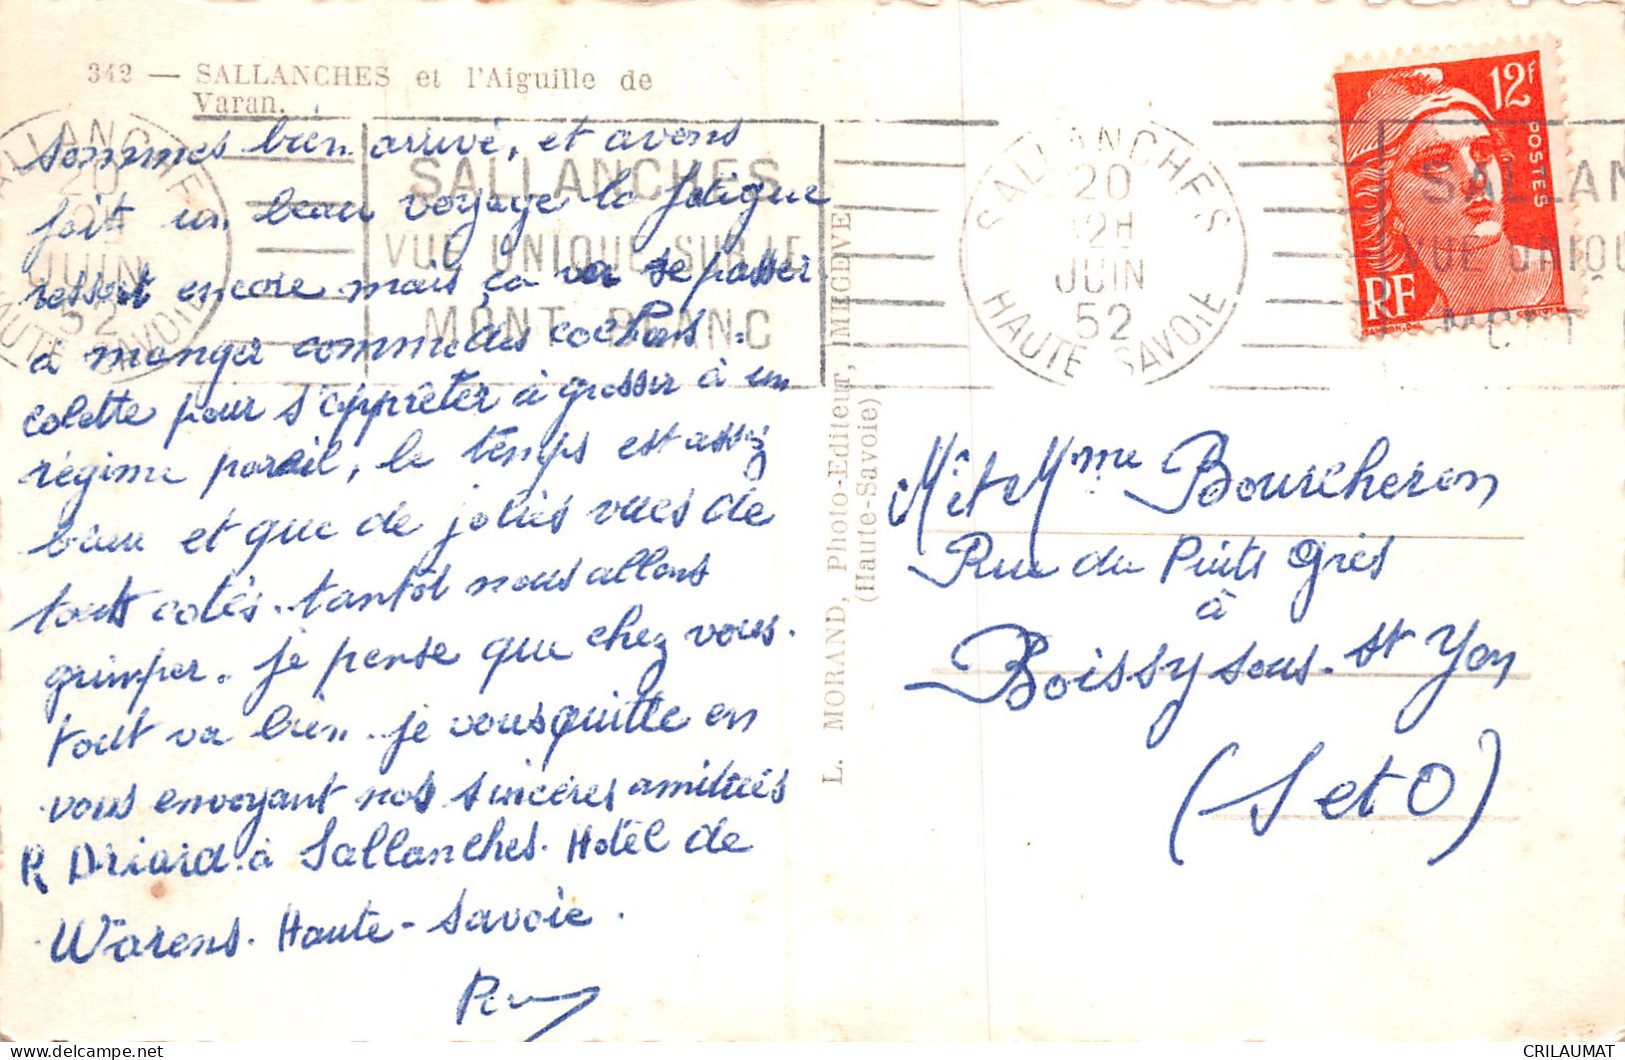 342 — SALLANCHES et l'Aiguille de
Varan.
Sommes bien arrivé, et avons
fait un beau voyage la fatigue
ressort encore mais ça va se passer.
à manger comme des cochons.
colette pour s'apprêter à grossir à un
régime pareil, le temps est assez
beau et que de jolies vues de
touts cotés. tantôt nous allons
grimper. je pense que chez vous.
tout va bien. je vous quitte en
vous envoyant nos sincères amitiés
R Driard à Sallanches. Hôtel de
Warens. Haute-Savoie.
L. MORAND, Photo-Editeur, MEGEVE
(Haute-Savoie)
SALLANCHES
20
JUIN
52
HAUTE SAVOIE
SALLANCHES
VUE UNIQUE SUR LE
MONT BLANC
SALLANCHES
20
12H
JUIN
52
HAUTE SAVOIE
12F
POSTES
RF
SALLAN
VUE UNIQU
MONT
Mr et Mme Bourcheron
Rue du Puits Grès
à
Boissy sous-St Yon
(S et O)
CRILAUMAT